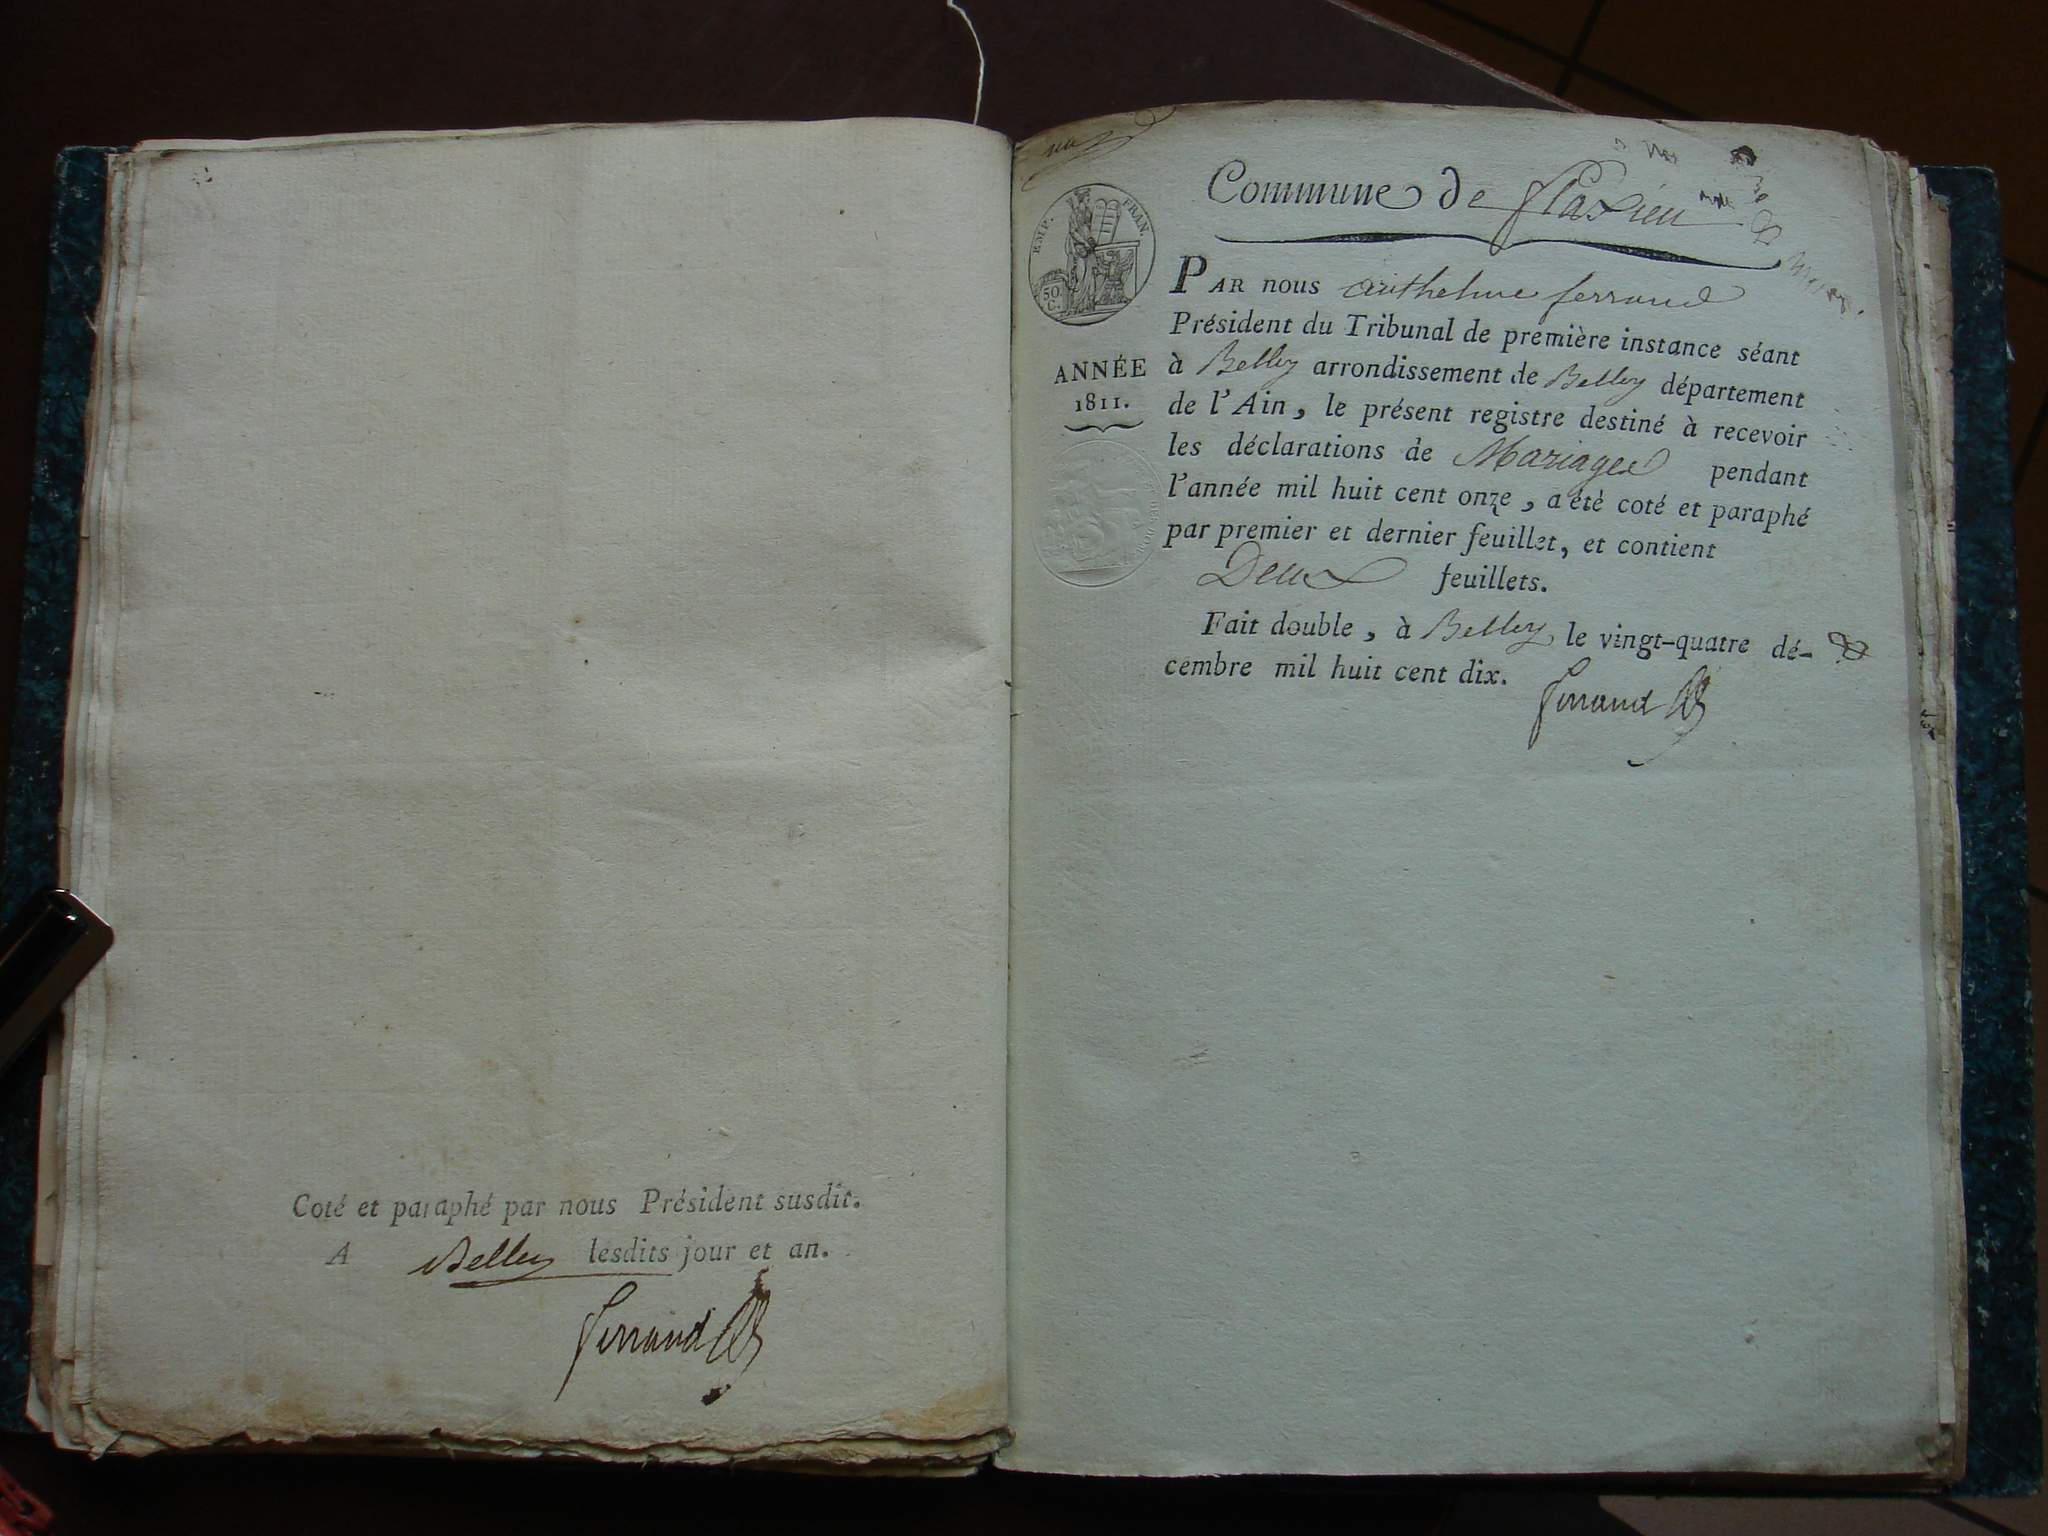 Coté et paraphé par nous Président susdit.
A Belley lesdits jour et an.
Ferrand
Commune de Flaxieu
EMP. FRAN.
50.
C.
ANNÉE
1811.
PAR nous anthelme ferrand
Président du Tribunal de première instance séant
à Belley arrondissement de Belley département
de l'Ain, le présent registre destiné à recevoir
les déclarations de Mariages pendant
l'année mil huit cent onze, a été coté et paraphé
par premier et dernier feuillet, et contient
Deux feuillets.
Fait double, à Belley le vingt-quatre dé-
cembre mil huit cent dix.
Ferrand